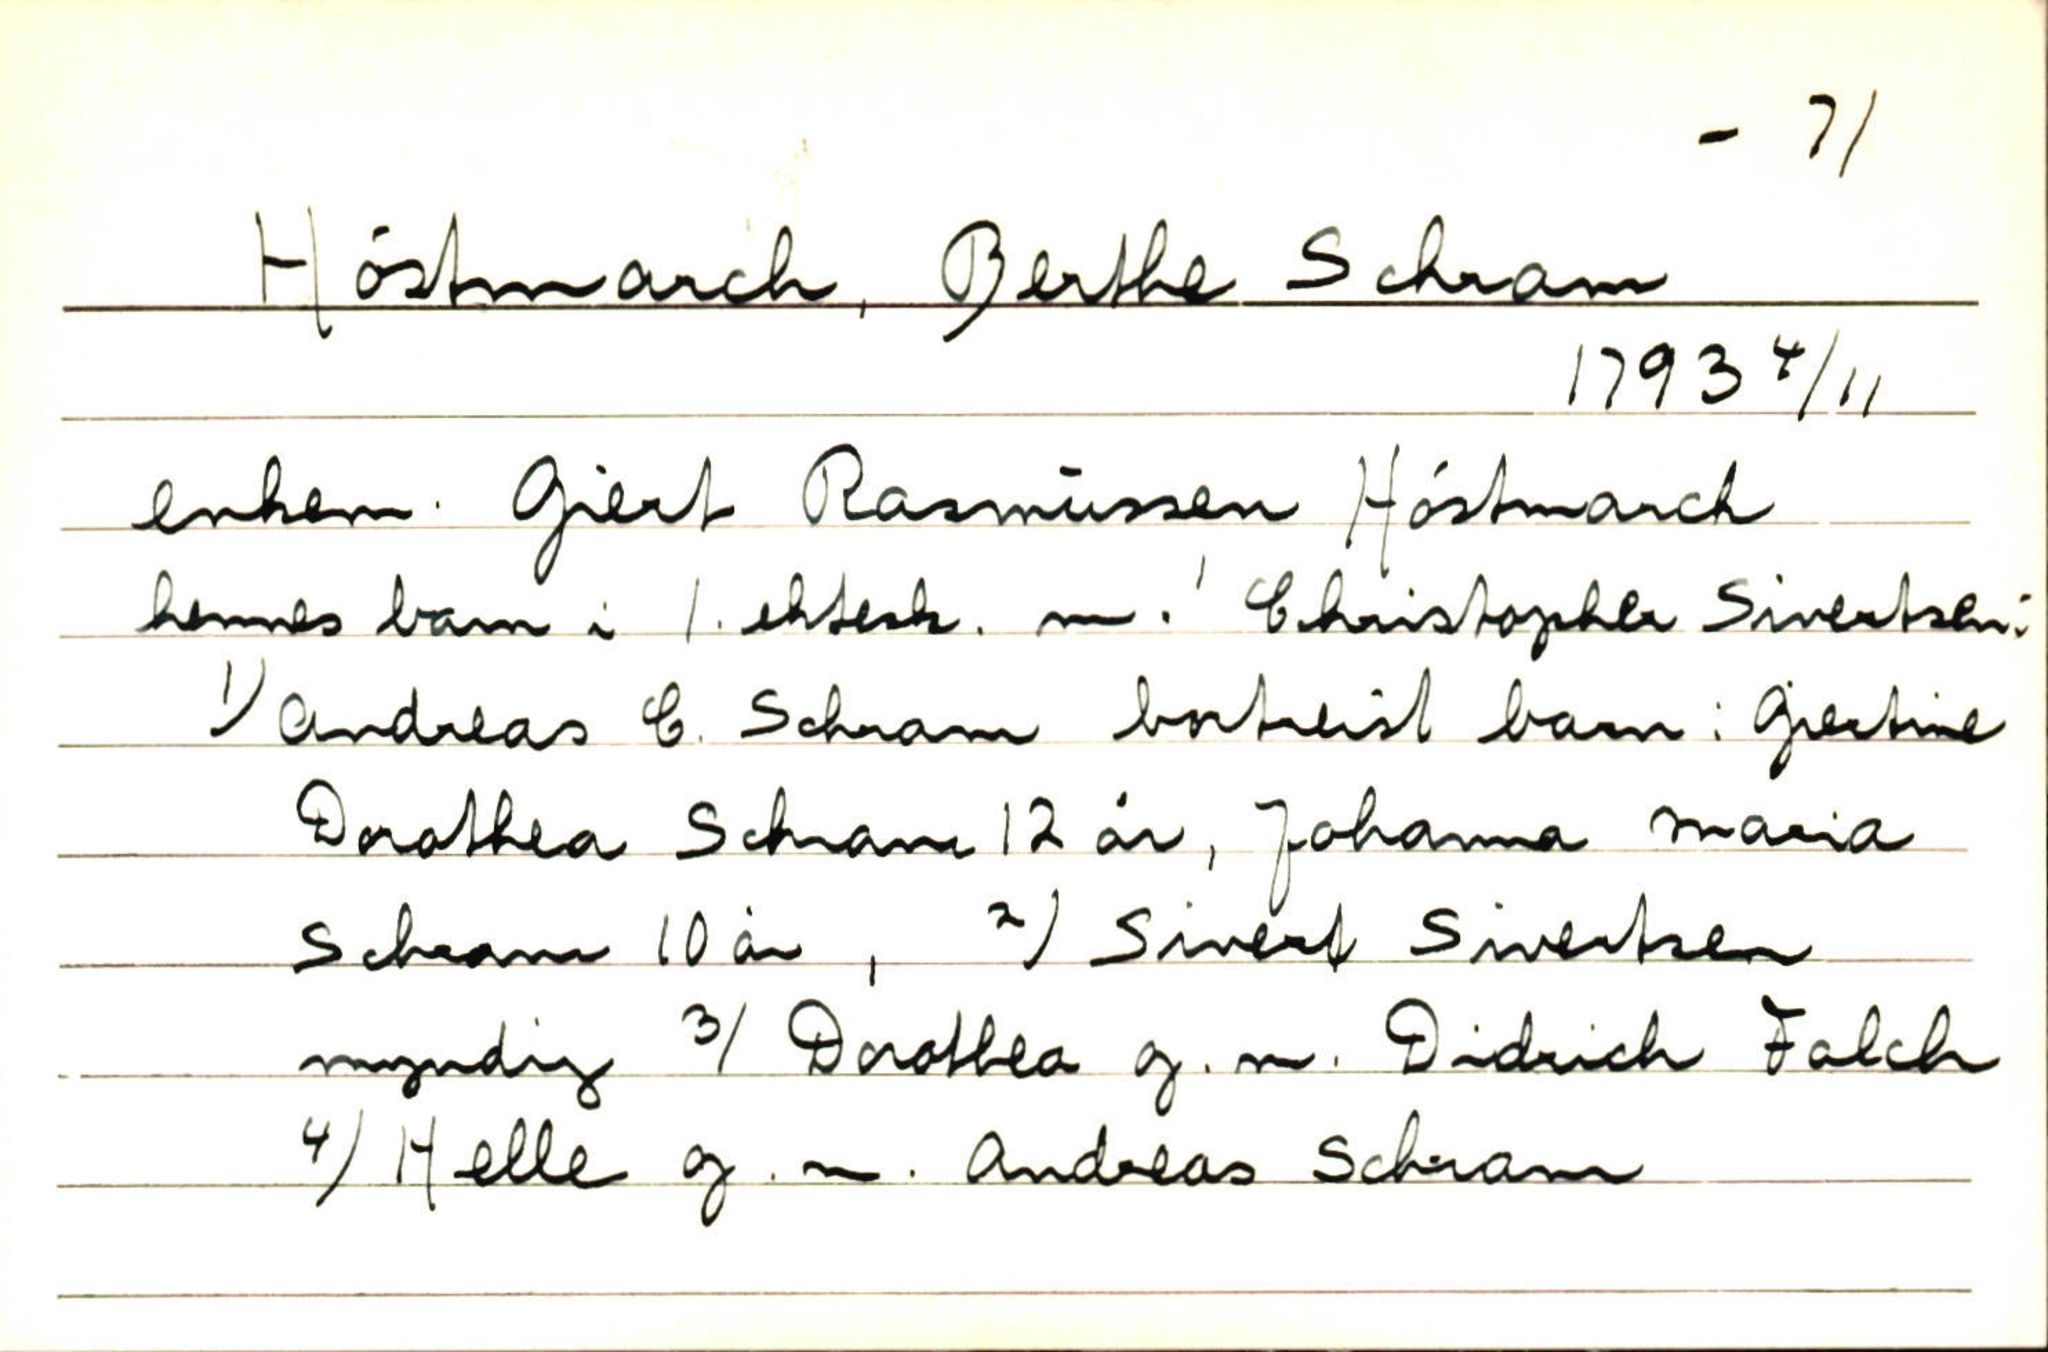 - 71
Höstmarch, Berthe Schram
1793 4/11
enkem. Giert Rasmüssen Höstmarch
hennes barn i 1. ektesk. m. Christopher Sivertsen:
1) Andreas C. Schram bortreist barn: Giertine
Dorothea Schram 12 år, Johanna Maria
Schram 10 år, 2) Sivert Sivertsen
myndig 3/ Dorothea g. m. Didrich Falch
4) Helle g. m. Andreas Schram